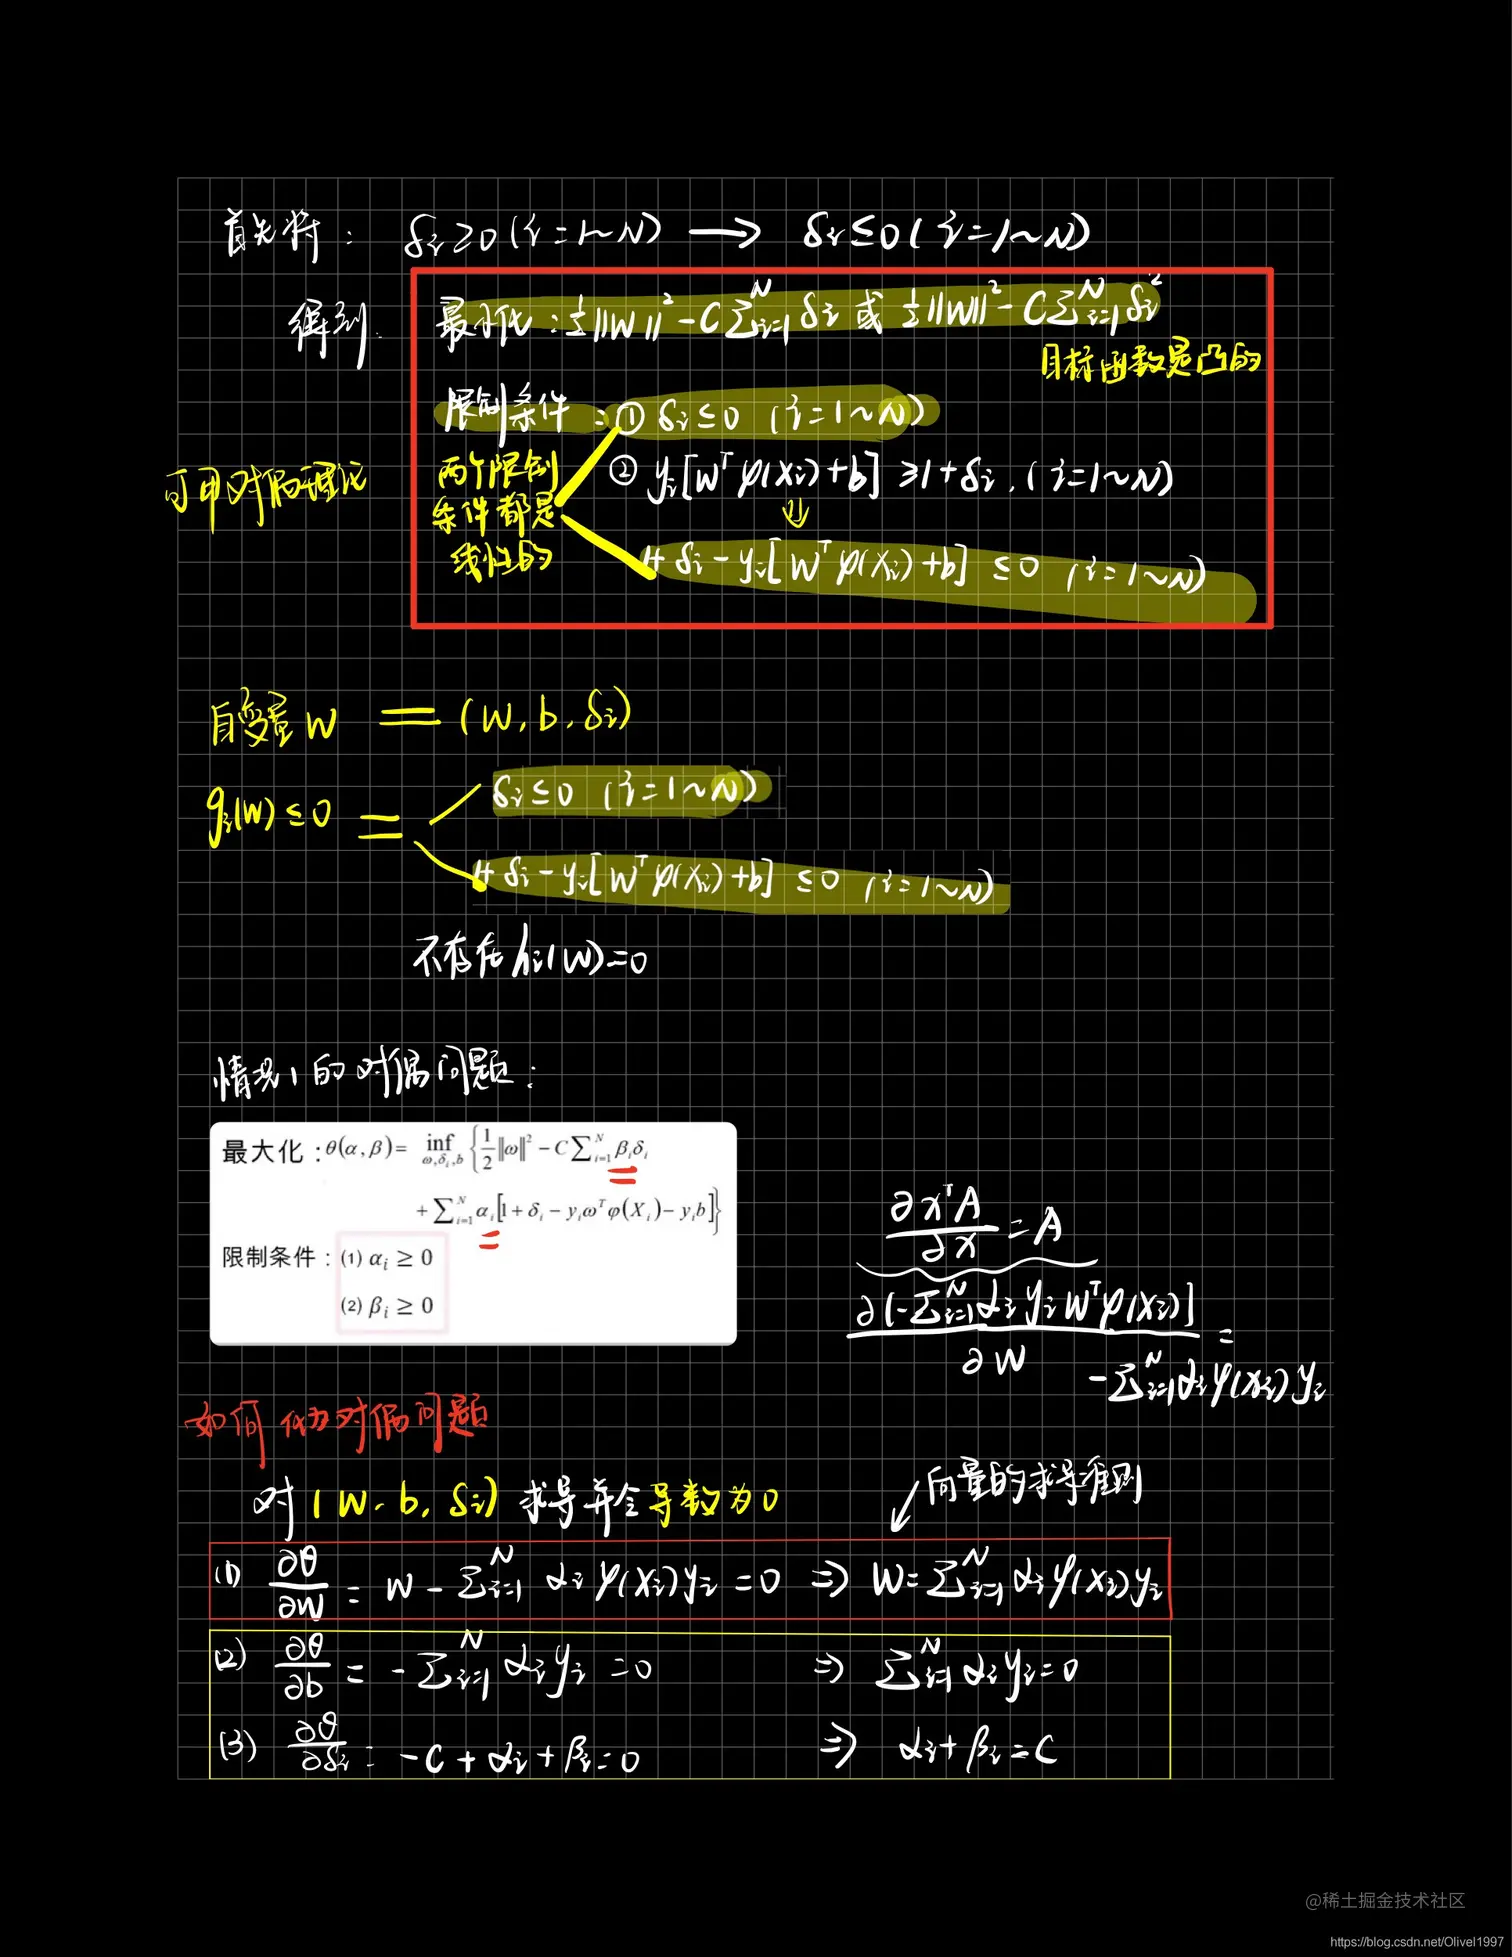 首先将: δi≥0(i=1~N) → δi≤0(i=1~N)
得到: 最小化:½||W||²-C∑ᴺi=1 δi 或 ½||W||²-C∑ᴺi=1 δi²
目标函数是凸的
限制条件:① δi≤0 (i=1~N)
可用对偶理论
两个限制条件都是线性的
② yi[Wᵀφ(Xi)+b]≥1+δi.(i=1~N)
1+δi-yi[Wᵀφ(Xi)+b]≤0 (i=1~N)
自变量W = (W,b,δi)
gi(W)≤0 =
δi≤0 (i=1~N)
1+δi-yi[Wᵀφ(Xi)+b]≤0 (i=1~N)
不存在hi(W)=0
情况1的对偶问题:
最大化:θ(α,β)= inf ω,δi,b {1/2||ω||²-C∑ᴺi=1 βiδi
+∑ᴺi=1 αi[1+δi-yiωᵀφ(Xi)-yib]}
限制条件:(1) αi≥0
(2) βi≥0
∂xᵀA/∂x=A
∂[-∑ᴺi=1 αiyiWᵀφ(Xi)]/∂W=
-∑ᴺi=1 αiφ(Xi)yi
如何 对偶问题
对(W,b,δi)求导并令导数为0
向量的求导准则
(1) ∂θ/∂W=W-∑ᴺi=1 αiφ(Xi)yi=0 ⇒ W=∑ᴺi=1 αiφ(Xi)yi
(2) ∂θ/∂b=-∑ᴺi=1 αiyi=0 ⇒ ∑ᴺi=1 αiyi=0
(3) ∂θ/∂δi=-C+αi+βi=0 ⇒ αi+βi=C
@稀土掘金技术社区
https://blog.csdn.net/Olivel1997